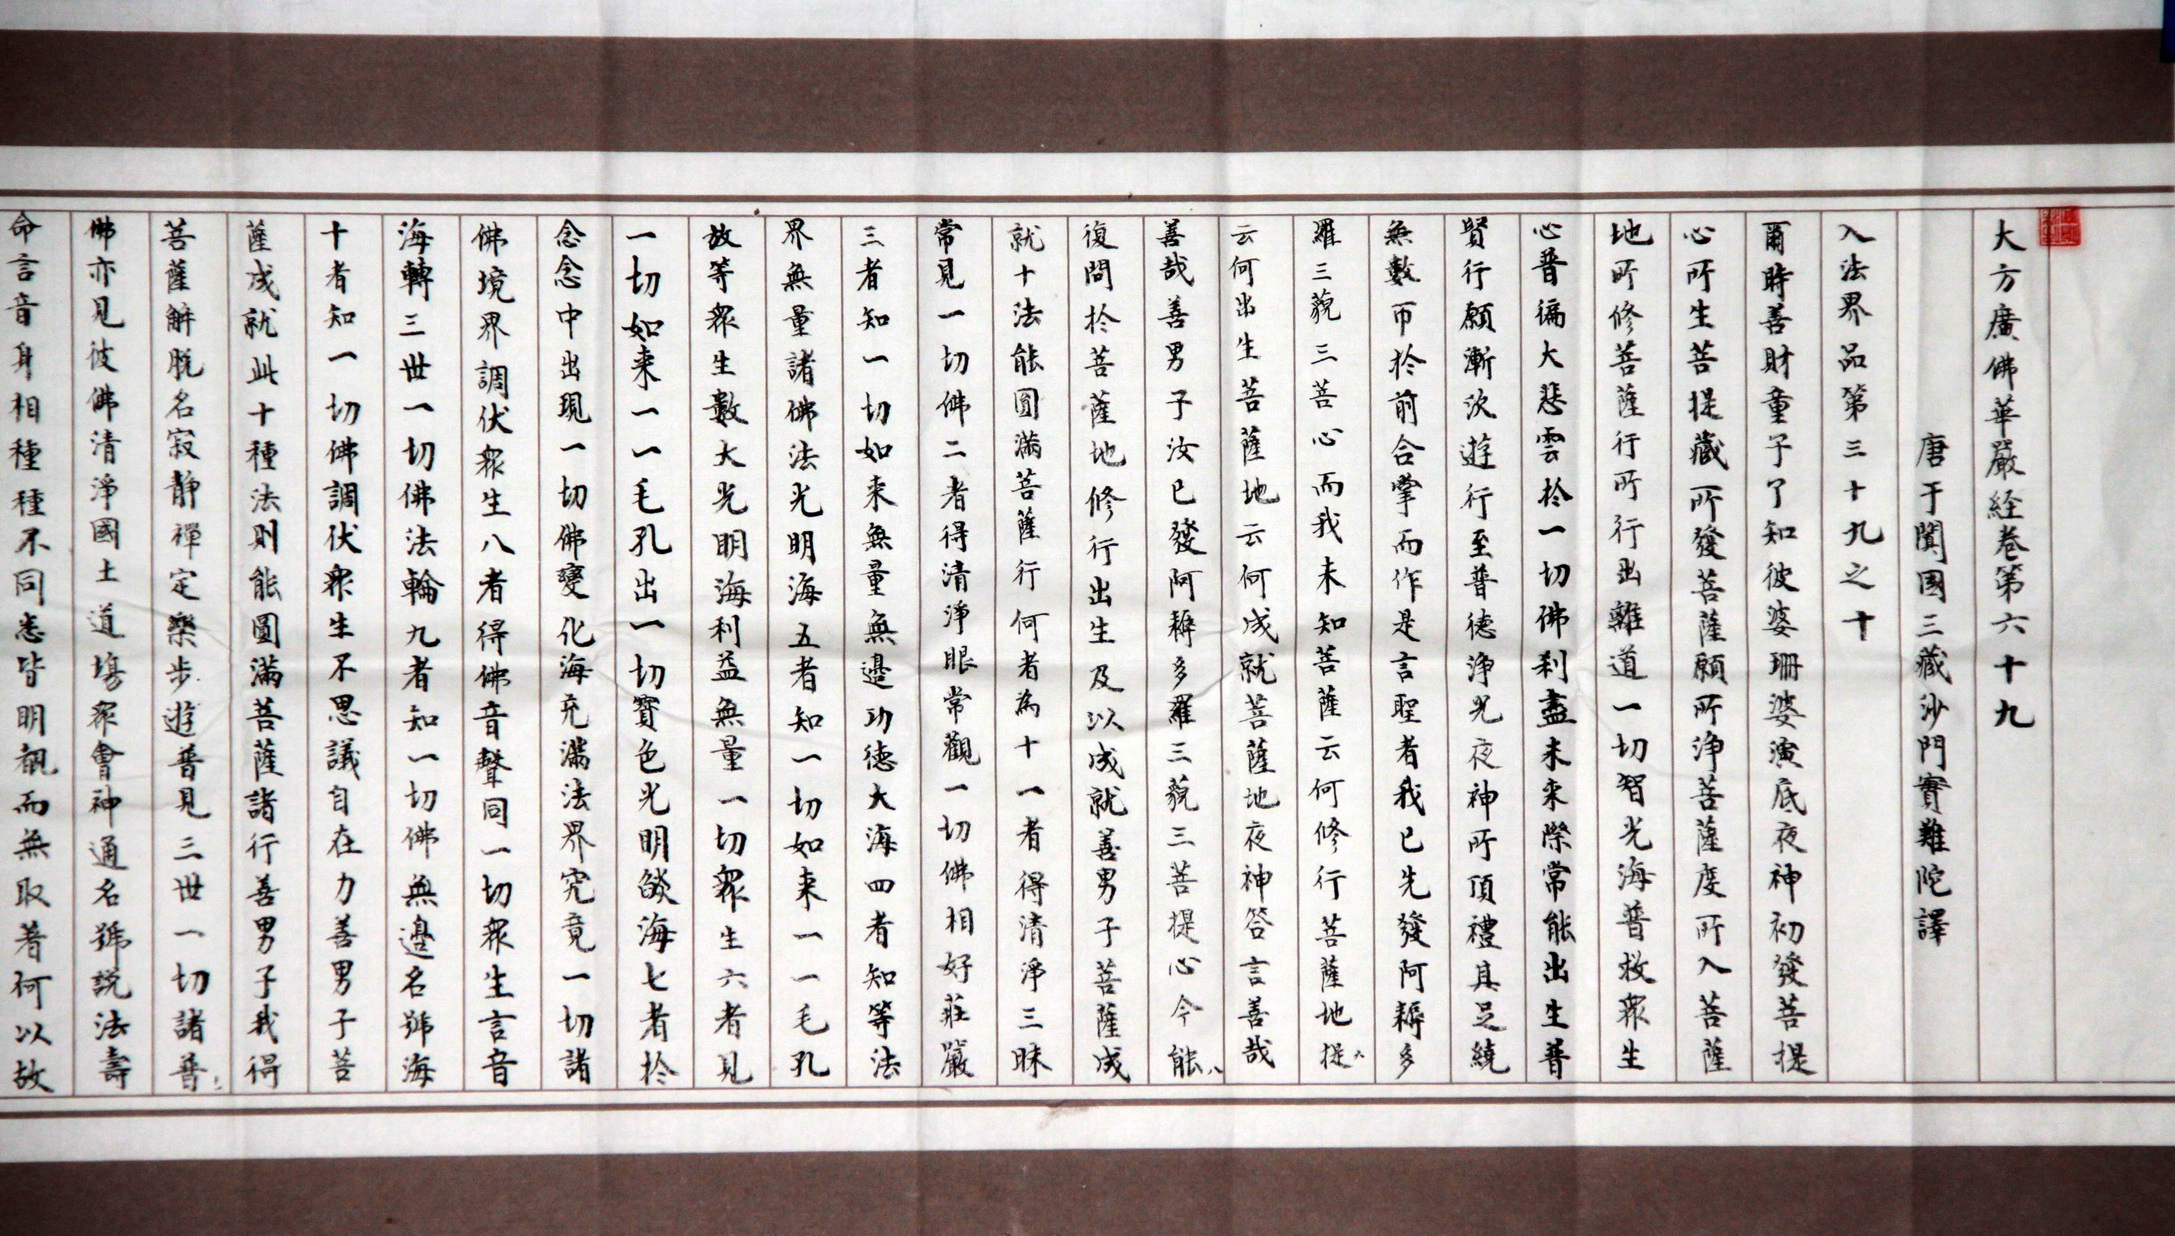 大方廣佛華嚴経卷第六十九
唐于闐國三藏沙門實難陀譯
入法界品第三十九之十
爾時善財童子了知彼婆珊婆演底夜神初發菩提
心所生菩提藏所發菩薩願所淨菩薩度所入菩薩
地所修菩薩行所行出離道一切智光海普救眾生
心普徧大悲雲於一切佛刹盡未來際常能出生普
賢行願漸次遊行至普德淨光夜神所頂禮其足繞
無數帀於前合掌而作是言聖者我已先發阿耨多
羅三藐三菩心而我未知菩薩云何修行菩薩地提
云何出生菩薩地云何成就菩薩地夜神答言善哉
善哉善男子汝已發阿耨多羅三藐三菩提心今能
復問於菩薩地修行出生及以成就善男子菩薩成
就十法能圓滿菩薩行何者為十一者得清淨三昧
常見一切佛二者得清淨眼常觀一切佛相好莊嚴
三者知一切如来無量無邊功德大海四者知等法
界無量諸佛法光明海五者知一切如来一一毛孔
放等眾生數大光明海利益無量一切眾生六者見
一切如来一一毛孔出一切寶色光明燄海七者於
念念中出現一切佛變化海充滿法界究竟一切諸
佛境界調伏眾生八者得佛音聲同一切眾生言音
海轉三世一切佛法輪九者知一切佛無邊名號海
十者知一切佛調伏眾生不思議自在力善男子菩
薩成就此十種法則能圓滿菩薩諸行善男子我得
菩薩解脫名寂静禪定樂步遊普見三世一切諸普
佛亦見彼佛清淨國土道場眾會神通名號説法壽
命言音身相種種不同悉皆明覩而無取著何以故